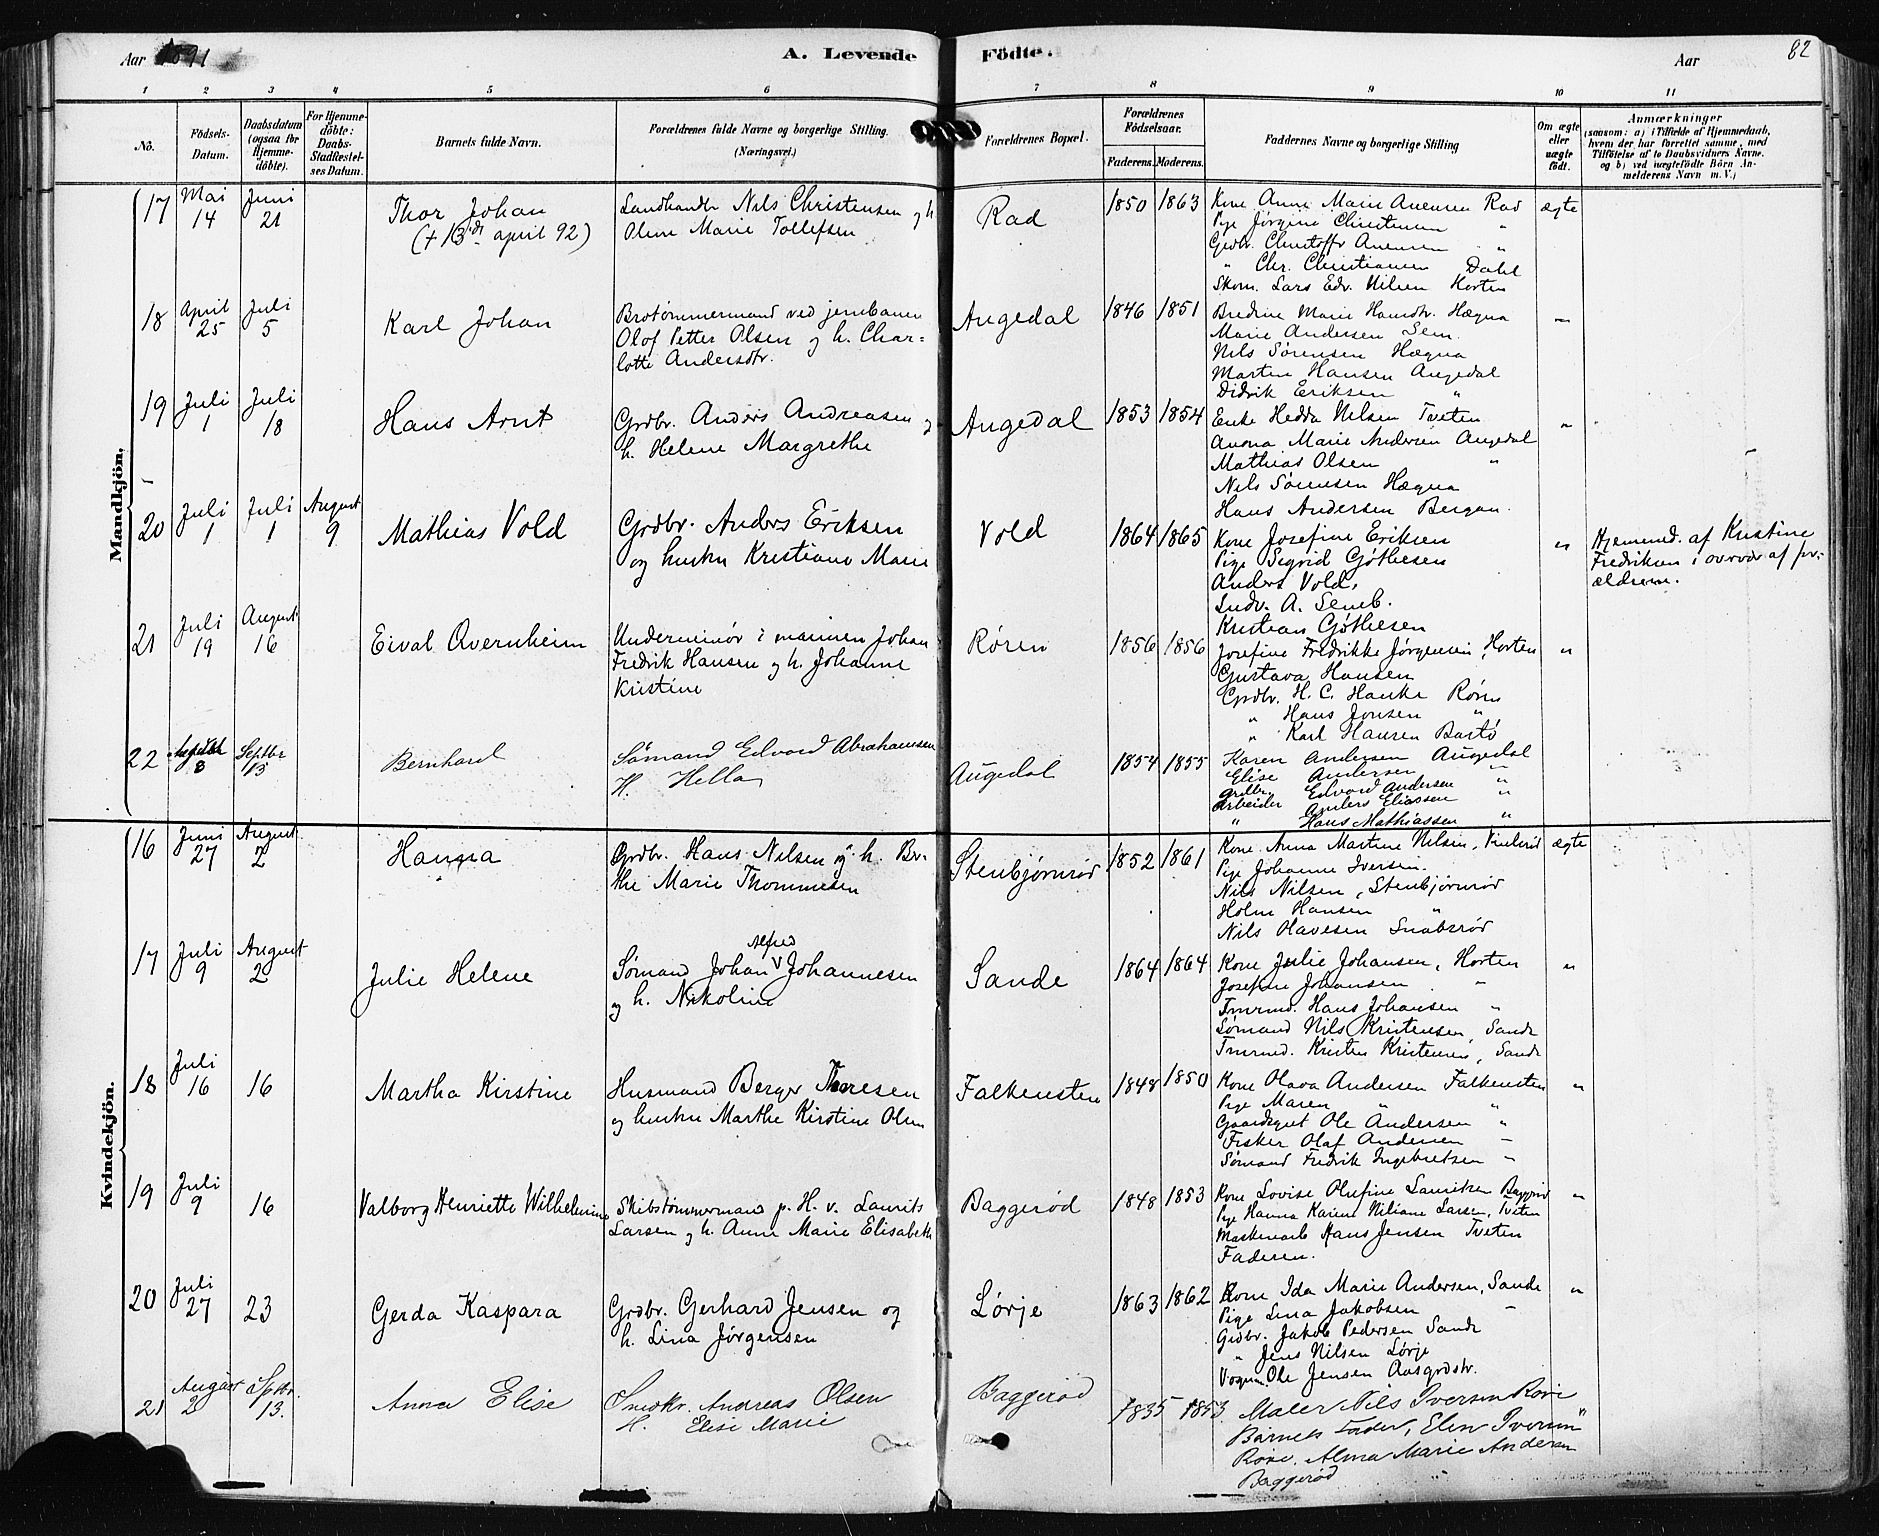 Aar 1891
A. Levende
Födte.
Aar
82
1 2 3 4 5 6 7 8 9 10 11
Nô.
Födsels-
Datum.
Daabsdatum
(ogsaa for
Hjemme-
döbte).
For Hjemme-
döbte:
Daabs-
Stadfæstel-
ses Datum.
Barnets fulde Navn.
Forældrenes fulde Navne og borgerlige Stilling.
(Næringsvei.)
Forældrenes Bopæl.
Forældrenes
Födselsaar.
Faderens. Moderens.
Faddernes Navne og borgerlige Stilling
Om ægte
eller
uægte
födt.
Anmærkninger
(saasom: a) i Tilfælde af Hjemmedaab,
hvem der har forrettet samme, med
Tilföielse af to Daabsvidners Navne.
og b) ved uægtefödte Börn An-
melderens Navn m. V.)
Mandkjön.
17 Mai 14 Juni 21
Thor Johan
(+ 13de april 92)
Landhandlr Nils Christensen og h.
Oline Marie Tollefsen
Rad
1850 1863
Kone Anne Marie Anensen Rad
Pige Jørgine Christensen "
Grdbr. Christoffr Anensen "
" Chr. Christiansen Dahl
Skom. Lars Edv. Nilsen Horten
ægte
18 April 25 Juli 5
Karl Johan
Brotømmermand ved jernbanen
Olof Petter Olsen og h. Char=
lotte Andersdtr.
Augedal
1846 1851
Bredine Marie Hansdtr. Hægna
Marie Andersen Sem
Nils Sørensen Hægna
Martin Hansen Augedal
Didrik Eriksen "
"
19 Juli 1 Juli 18
Hans Arnt
Grdbr. Anders Andreasen og
h. Helene Margrethe
Augedal
1853 1854
Enke Hedda Nilsen Tveten
Anna Marie Andersen Augedal
Mathias Olsen "
Nils Sørensen Hægna
Hans Andersen Bergan
"
20 Juli 1 Juli 1 August 9
Mathias Vold
Grdbr. Anders Eriksen
og hustru Kristiane Marie
Vold
1864 1865
Kone Josefine Eriksen
Pige Sigrid Gøthesen
Anders Vold,
Ludv. A. Semb.
Kristian Gøthesen
"
Hjemmed. af Kristine
Fredriksen i overvær af for-
ældrene.
21 Juli 19 August 16
Eival Overnheim
Underminør i marinen Johan
Fredrik Hansen og h. Johanne
Kristine
Røren
1856 1856
Josefine Fredrikke Jørgensen, Horten
Gustava Hansen
Grdbr. H. C. Hanke Røren
" Hans Jonsen "
" Karl Hansen Bastø
"
22 8 Septbr 13
Bernhard
Sømand Edvard Abrahamsen
H. Hella
Augedal
1854 1855
Karen Andersen Augedal
Elise Andersen "
Grdbr. Edvard Andersen "
Arbeider Anders Eliassen "
" Hans Mathiassen "
Kvindekjön.
16 Juni 27 August 2
Hanna
Grdbr. Hans Nilsen og h. Ber-
the Marie Thommesen
Stenbjørnrød
1852 1861
Kone Anna Martine Nilsen,
Pige Johanne Iversen.
Nils Nilsen, Stenbjørnrød
Holm Hansen "
Nils Olavesen Snabsrød
ægte
17 Juli 9 August 2
Julie Helene
Sømand Johan Alfred Johannesen
og h. Nikoline
Sande
1864 1864
Kone Julie Johansen, Horten
Josefine Johansen "
Tmrmd. Hans Johansen "
Sømand Nils Kristensen, Sande
Tmrmd. Kristen Kristensen, Sande
"
18 Juli 16 16
Martha Kirstine
Husmand Berger Thoresen
og hustru Marthe Kirstine Olsen
Falkensten
1848 1850
Kone Olava Andersen Falkensten
Pige Maren " "
Gaardsgut Ole Andersen "
Fisker Olaf Andersen "
Sømand Fredrik Ingebretsen "
"
19 Juli 9 16
Valborg Henriette Wilhelmine
Skibstømmermand p. H. v. Laurits
Larsen og h. Anne Marie Elisabeth
Baggerød
1848 1853
Kone Lovise Olufine Lauritzen Baggerød
Pige Hanna Karine Niliane Larsen, Tveten
Maskinarb Hans Jensen Tveten
Faderen.
"
20 Juli 27 23
Gerda Kaspara
Grdbr. Gerhard Jensen og
h. Lina Jørgensen
Lørje
1863 1862
Kone Ida Marie Andersen, Sande
Pige Lina Jakobsen "
Grdbr. Jakob Pedersen Sande
" Jens Nilsen Lørje
Vognm. Ole Jensen Aasgrdstr.
"
21 August 2 Septbr. 13.
Anna Elise
Snedkr. Andreas Olsen
H. Elise Marie
Baggerød
1835 1853
Maler Nils Iversen Røre
Barnets Fader, Elen Iversen "
Røre. Alma Marie Andersen
Baggerød